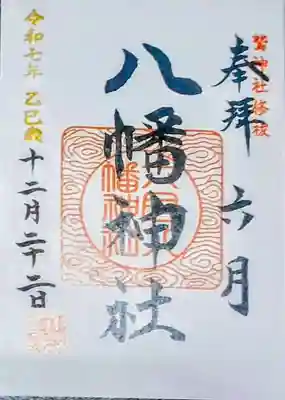 鷲神社
奉拝 六月
八幡神社
令和七年 乙巳歳
十二月二十二日